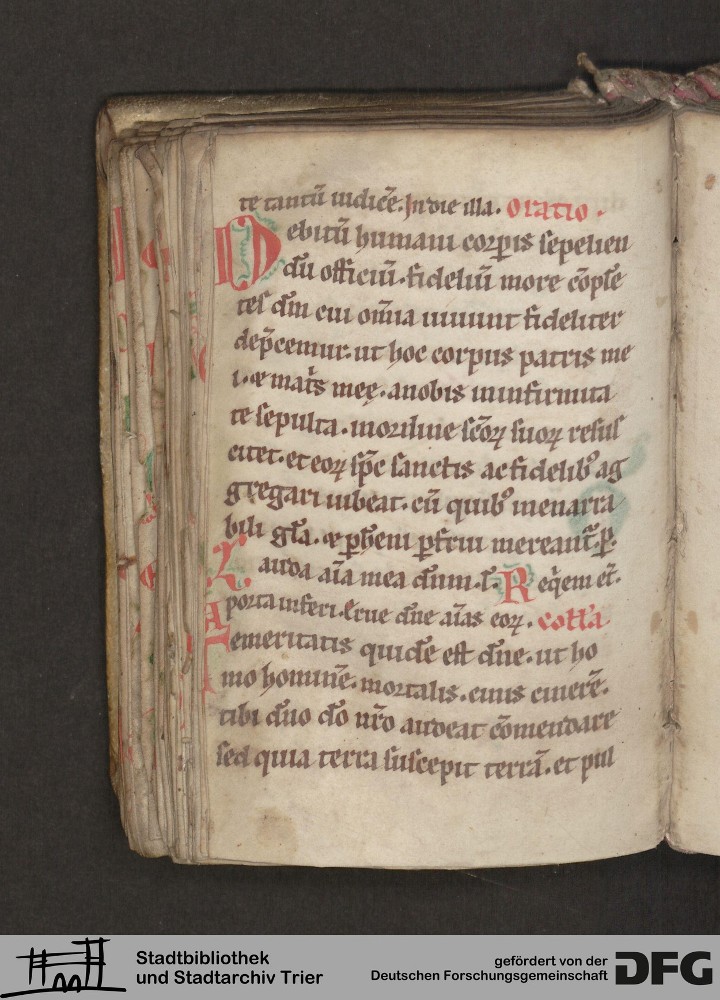 te tantū iudicē. In die illa. Oratio.
Debitū humani corꝑis sepelien
dū officiū. fideliū more cōplē
tes dm̄ cui om̄a uiuunt fideliter
dep̄cemur. ut hoc corpus patris me
i. et mat̄s meę. anobis in infirmita
te sepulta. in ordine sc̄oꝝ suoꝝ resus
citet. et eoꝝ sp̄c sanctis ac fidelibꝰ ag
gregari iubeat. cū quibꝰ inenarra
bili gl̄a. et ꝑhenni ꝑfrui mereant̄. ꝑ.
Lauda aīa mea dnm. Reqēm et̄.
A porta inferi. Erue dn̄e aīas eoꝝ. Coll̄a
Temeritatis quidē est dn̄e. ut ho
mo hominē. mortalis. cinis cinerē.
tibi dn̄o do nr̄o audeat cōmendare
sed quia terra suscepit terrā. et pul
Stadtbibliothek
und Stadtarchiv Trier
gefördert von der
Deutschen Forschungsgemeinschaft
DFG